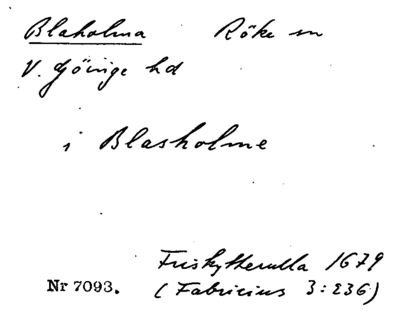 Blaholma Röke sn
V. Göinge hd
i Blasholme
Friskytterulla 1679
Nr 7093. (Fabricius 3:236)